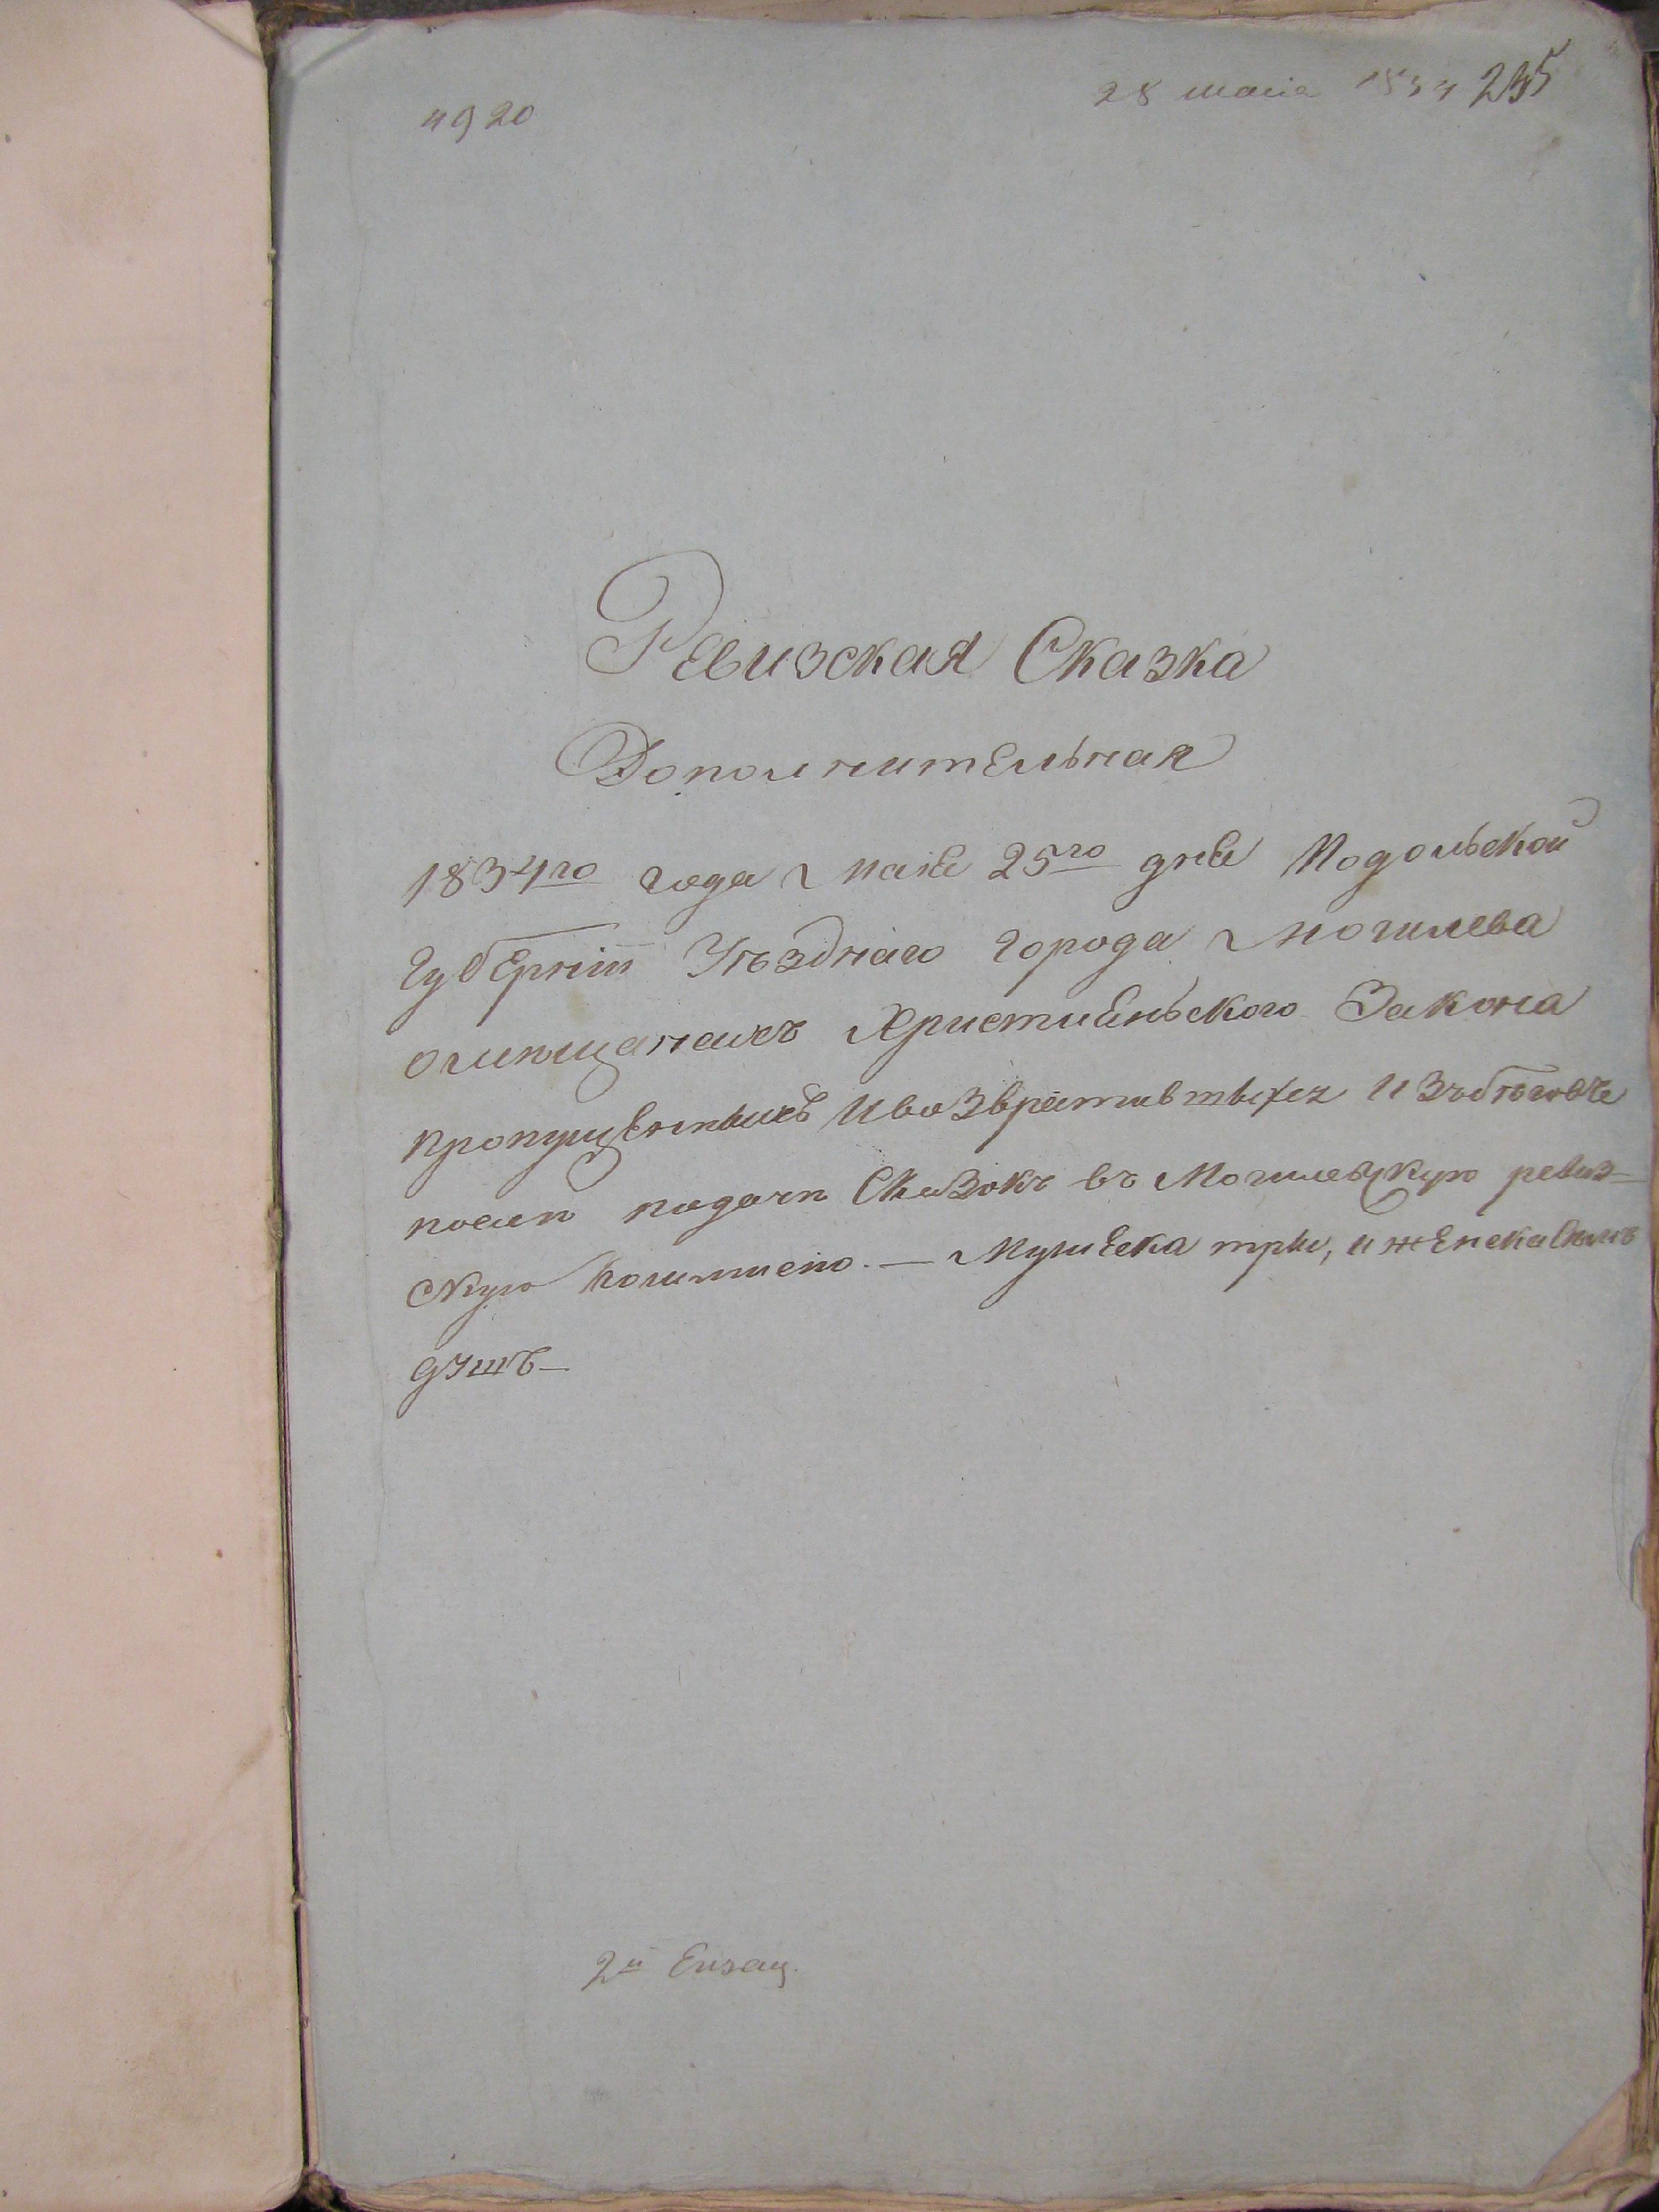 4920
28 маія 1834 245
Ревизская Сказка
Дополнительная
1834го года Маія 25го дня Подольской
Губерніи Уѣзднаго города Могилева
омѣщанехъ Христиѣнського Закона
пропущенныхъ Ивозвратившихся Изъбѣговъ
послѣ подачи Сказокъ въ Могилевцкую ревиз-
скую комисію. — Мужеска три, и женска
душъ —
2й Екзец.